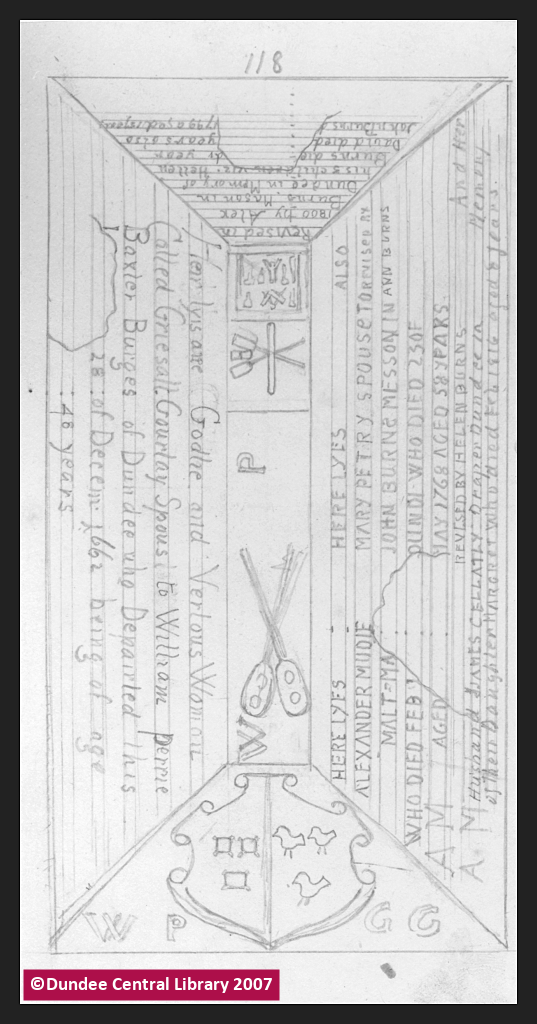 118
Revised in
1800 by Alex
Burns. Mason in
Dundee in Memory of
his 5 children viz. Hellen
Burns die
dr year
David died
years also
John Burns d
1799 aged 15 years
Hier lyis ane Godlie and Vertous Woman
Called Grissall Gourlay Spous to William Perrie
Baxter Burges of Dundee who Departed this
28 of Decem 1662 being of age
:48 years
P
W
W P G G
ALSO
HERE LYES
MARY PETRY SPOUSE TO REVISED BY
JOHN BURNS MESSON IN ANN BURNS
DUNDE WHO DIED 23 OF
MAY 1768 AGED 58 YEARS.
REVISED BY HELEN BURNS
HERE LYES
ALEXANDER MUDIE
MALT=MA
WHO DIED FEB
AGED
A M
A M
And Her
Husband JAMES GELLATLY. Draper Dundee in Memory
of their Daughter MARGRET who died Feb 1816 aged 8 years.
©Dundee Central Library 2007